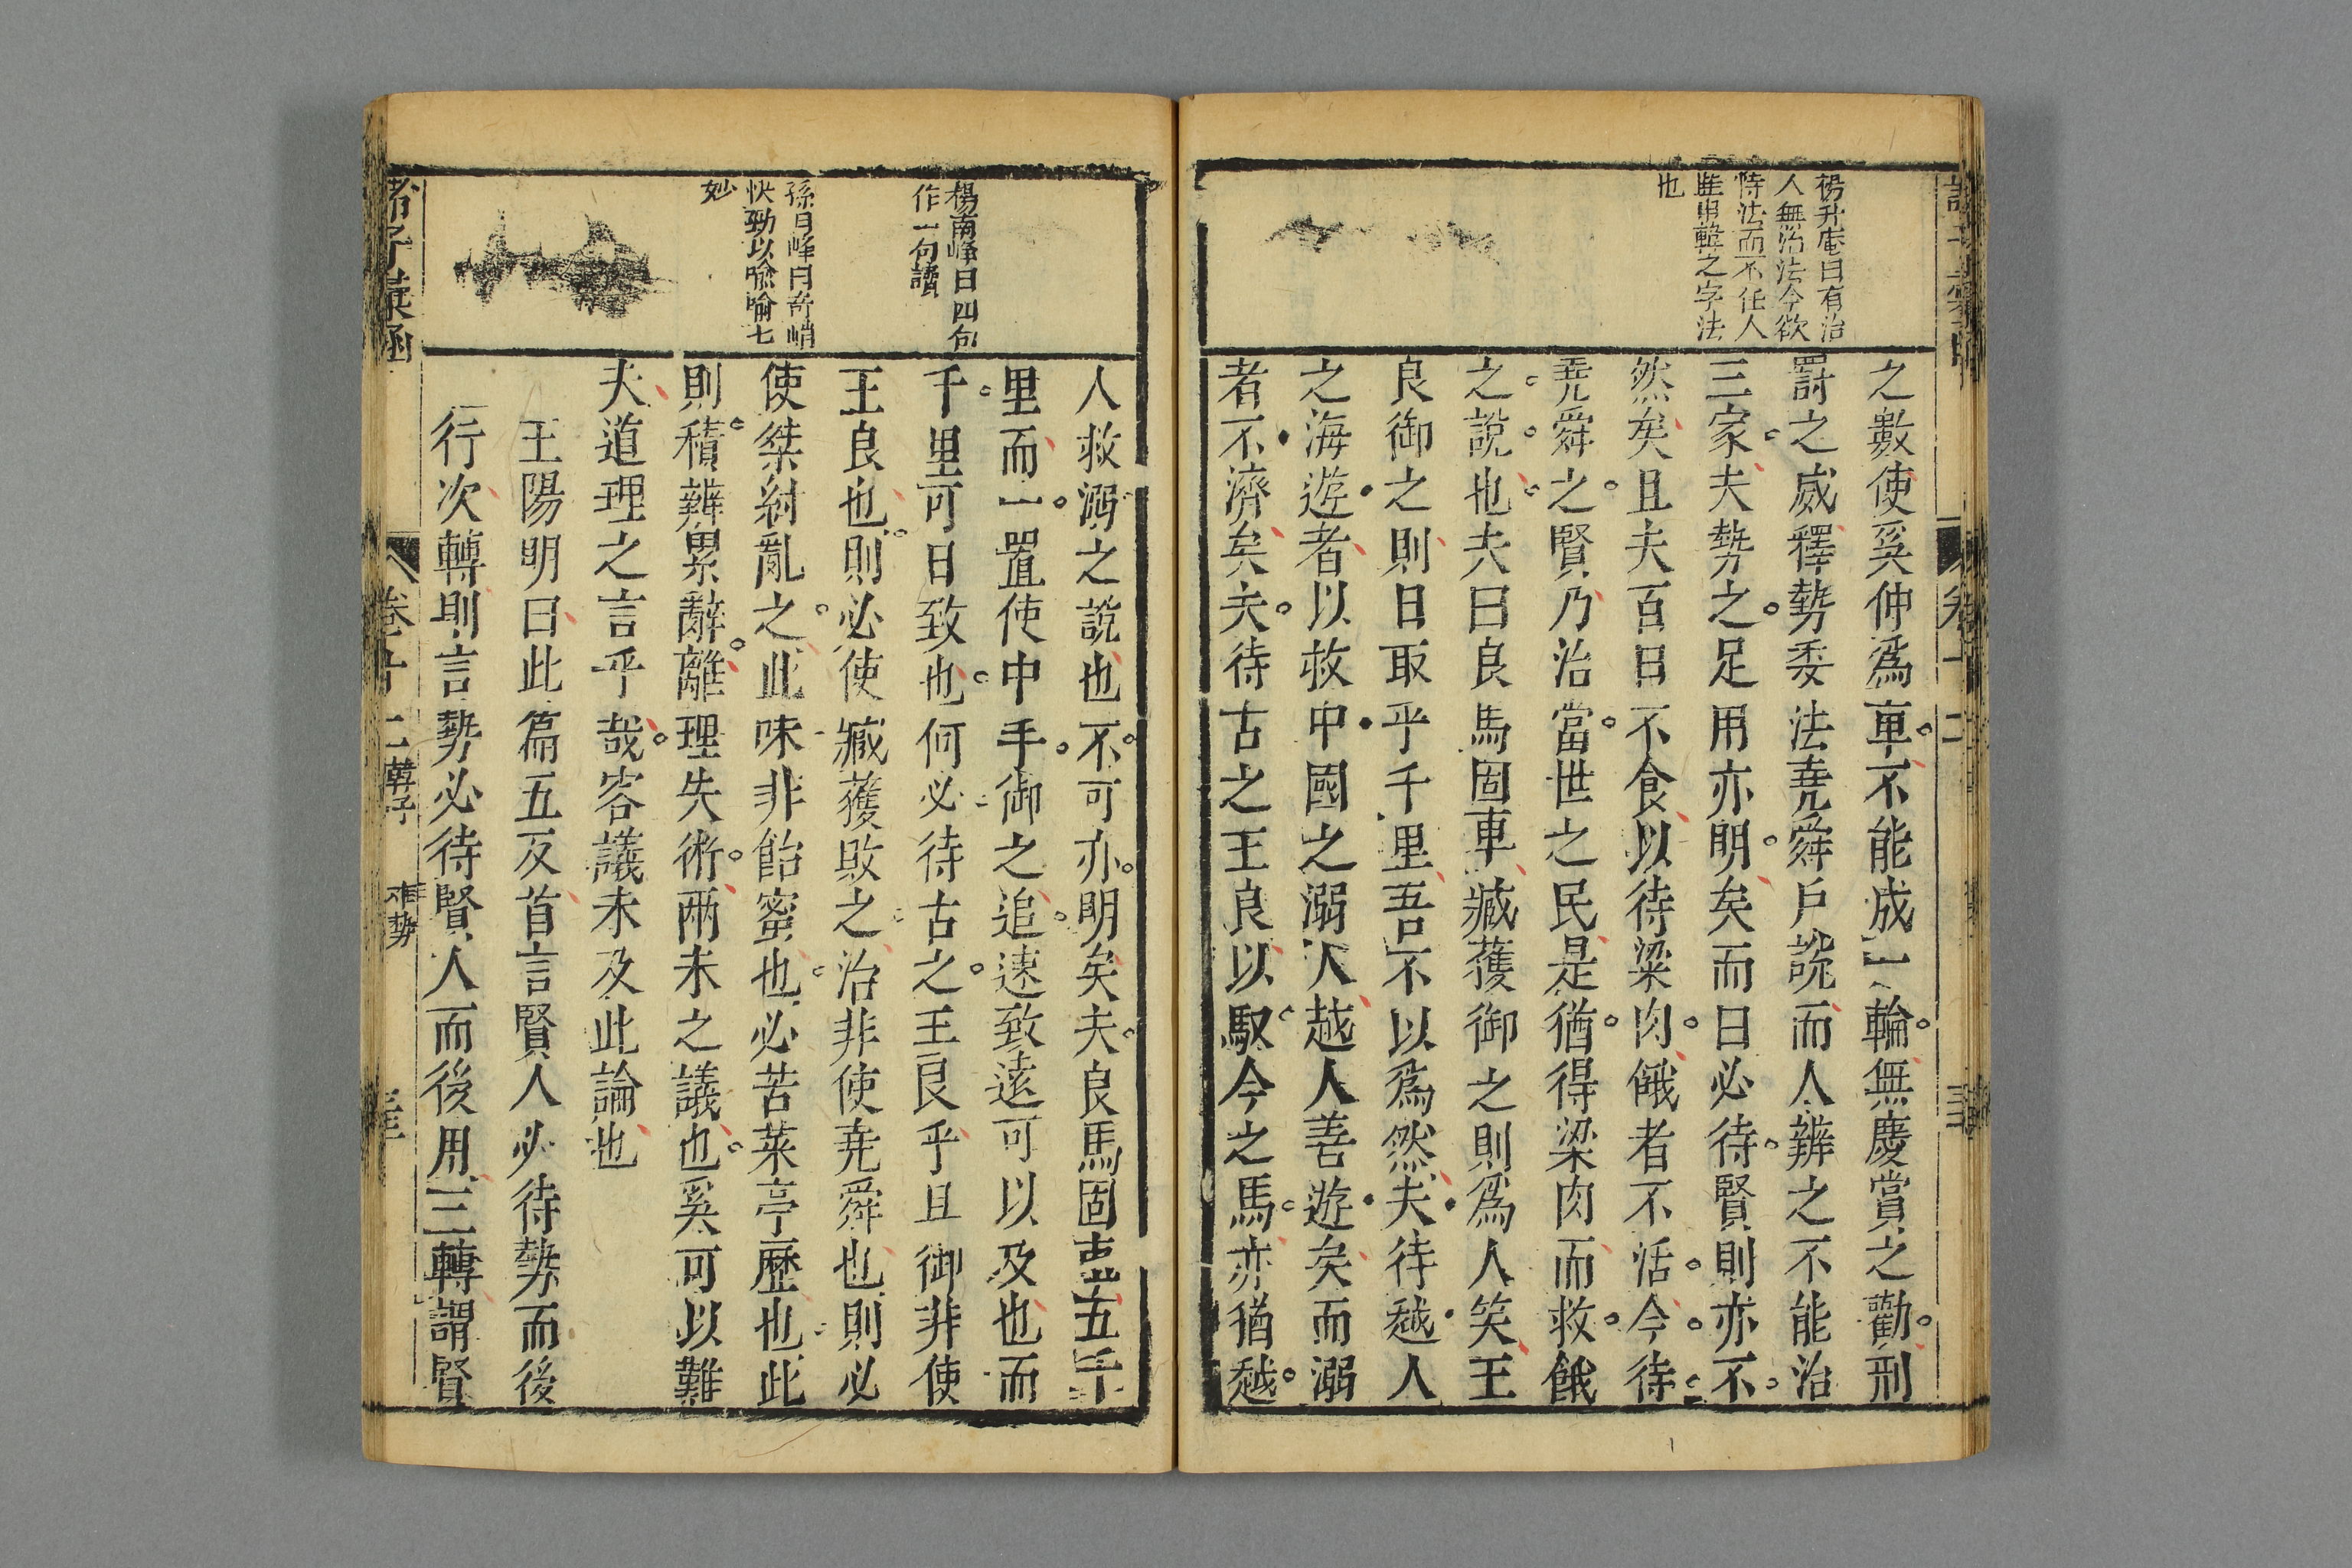 楊升庵曰有治
人無治法今欲
恃法而不任人
非申韓之字法
也
之數使奚仲爲車不能成一輪無慶賞之勸刑
罰之威釋勢委法堯舜戶說而人辨之不能治
三家夫勢之足用亦明矣而曰必待賢則亦不
然矣且夫百日不食以待粱肉餓者不活今待
堯舜之賢乃治當世之民是猶得梁肉而救餓
之說也夫曰良馬固車臧獲御之則爲人笑王
良御之則日取乎千里吾不以爲然夫待越人
之海遊者以救中國之溺人越人善遊矣而溺
者不濟矣夫待古之王良以馭今之馬亦猶越
楊南峰曰四句
作一句讀
孫月峰曰奇峭
快勁以喩喻七
妙
人救溺之說也不可亦明矣夫良馬固車五十
里而一置使中手御之追速致遠可以及也而
千里可日致也何必待古之王良乎且御非使
王良也則必使臧獲敗之治非使堯舜也則必
使桀紂亂之此味非飴蜜也必苦菜亭歷也此
則積辨累辭離理失術兩未之議也奚可以難
夫道理之言乎哉客議未及此論也
王陽明曰此篇五反首言賢人必待勢而後
行次轉則言勢必待賢人而後用三轉謂賢
諸子彙函
卷十二 韓子 难勢